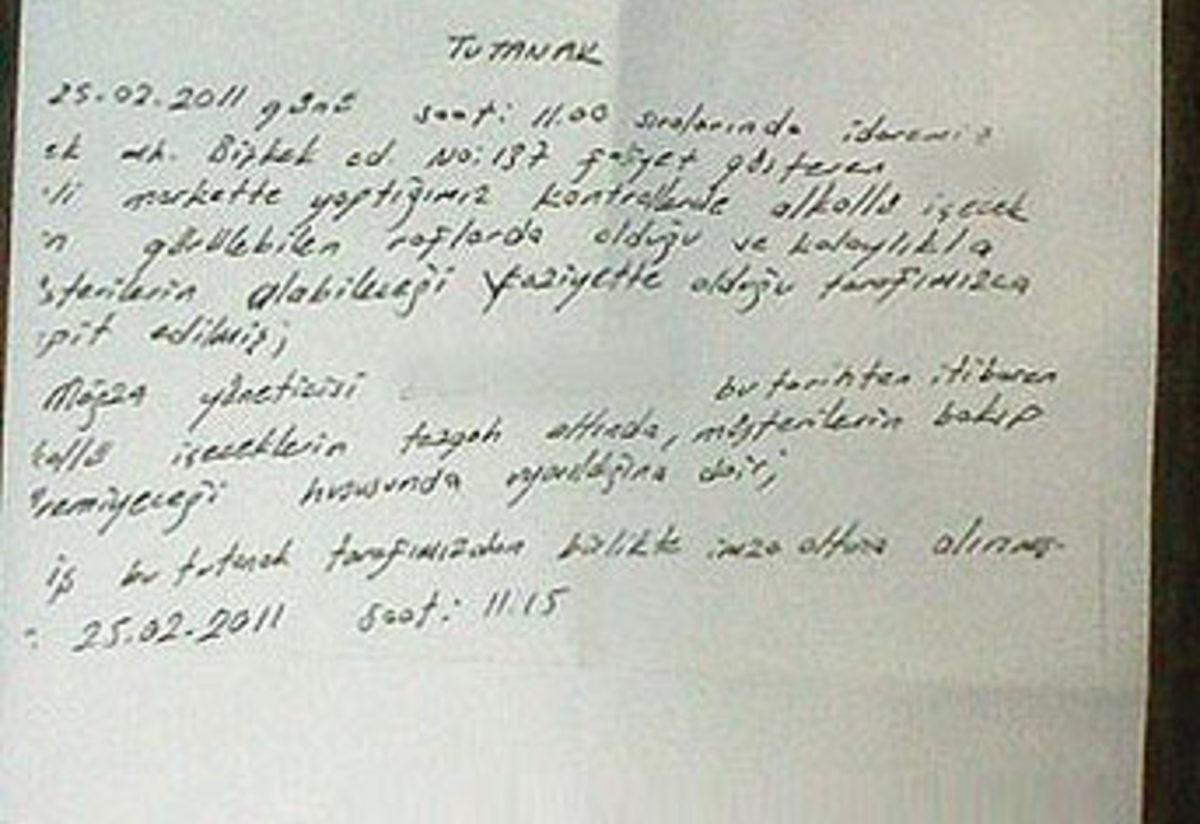 TUTANAK
25.02.2011 günü saat: 11.00 sıralarında idaremiz
ek mh. Bişkek cd. No: 137 faaliyet gösteren
markette yaptığımız kontrollerde alkollü içecek
görülebilen raflarda olduğu ve kolaylıkla
sterilerin alabileceği vaziyette olduğu tarafımızca
spit edilmiş;
Mağaza yöneticisi bu tarihten itibaren
kollü içeceklerin tezgah altında, müşterilerin bakıp
remiyeceği hususunda uyarıldığına dair;
iş bu tutanak tarafımızdan birlikte imza altına alınmış-
: 25.02.2011 saat: 11:15